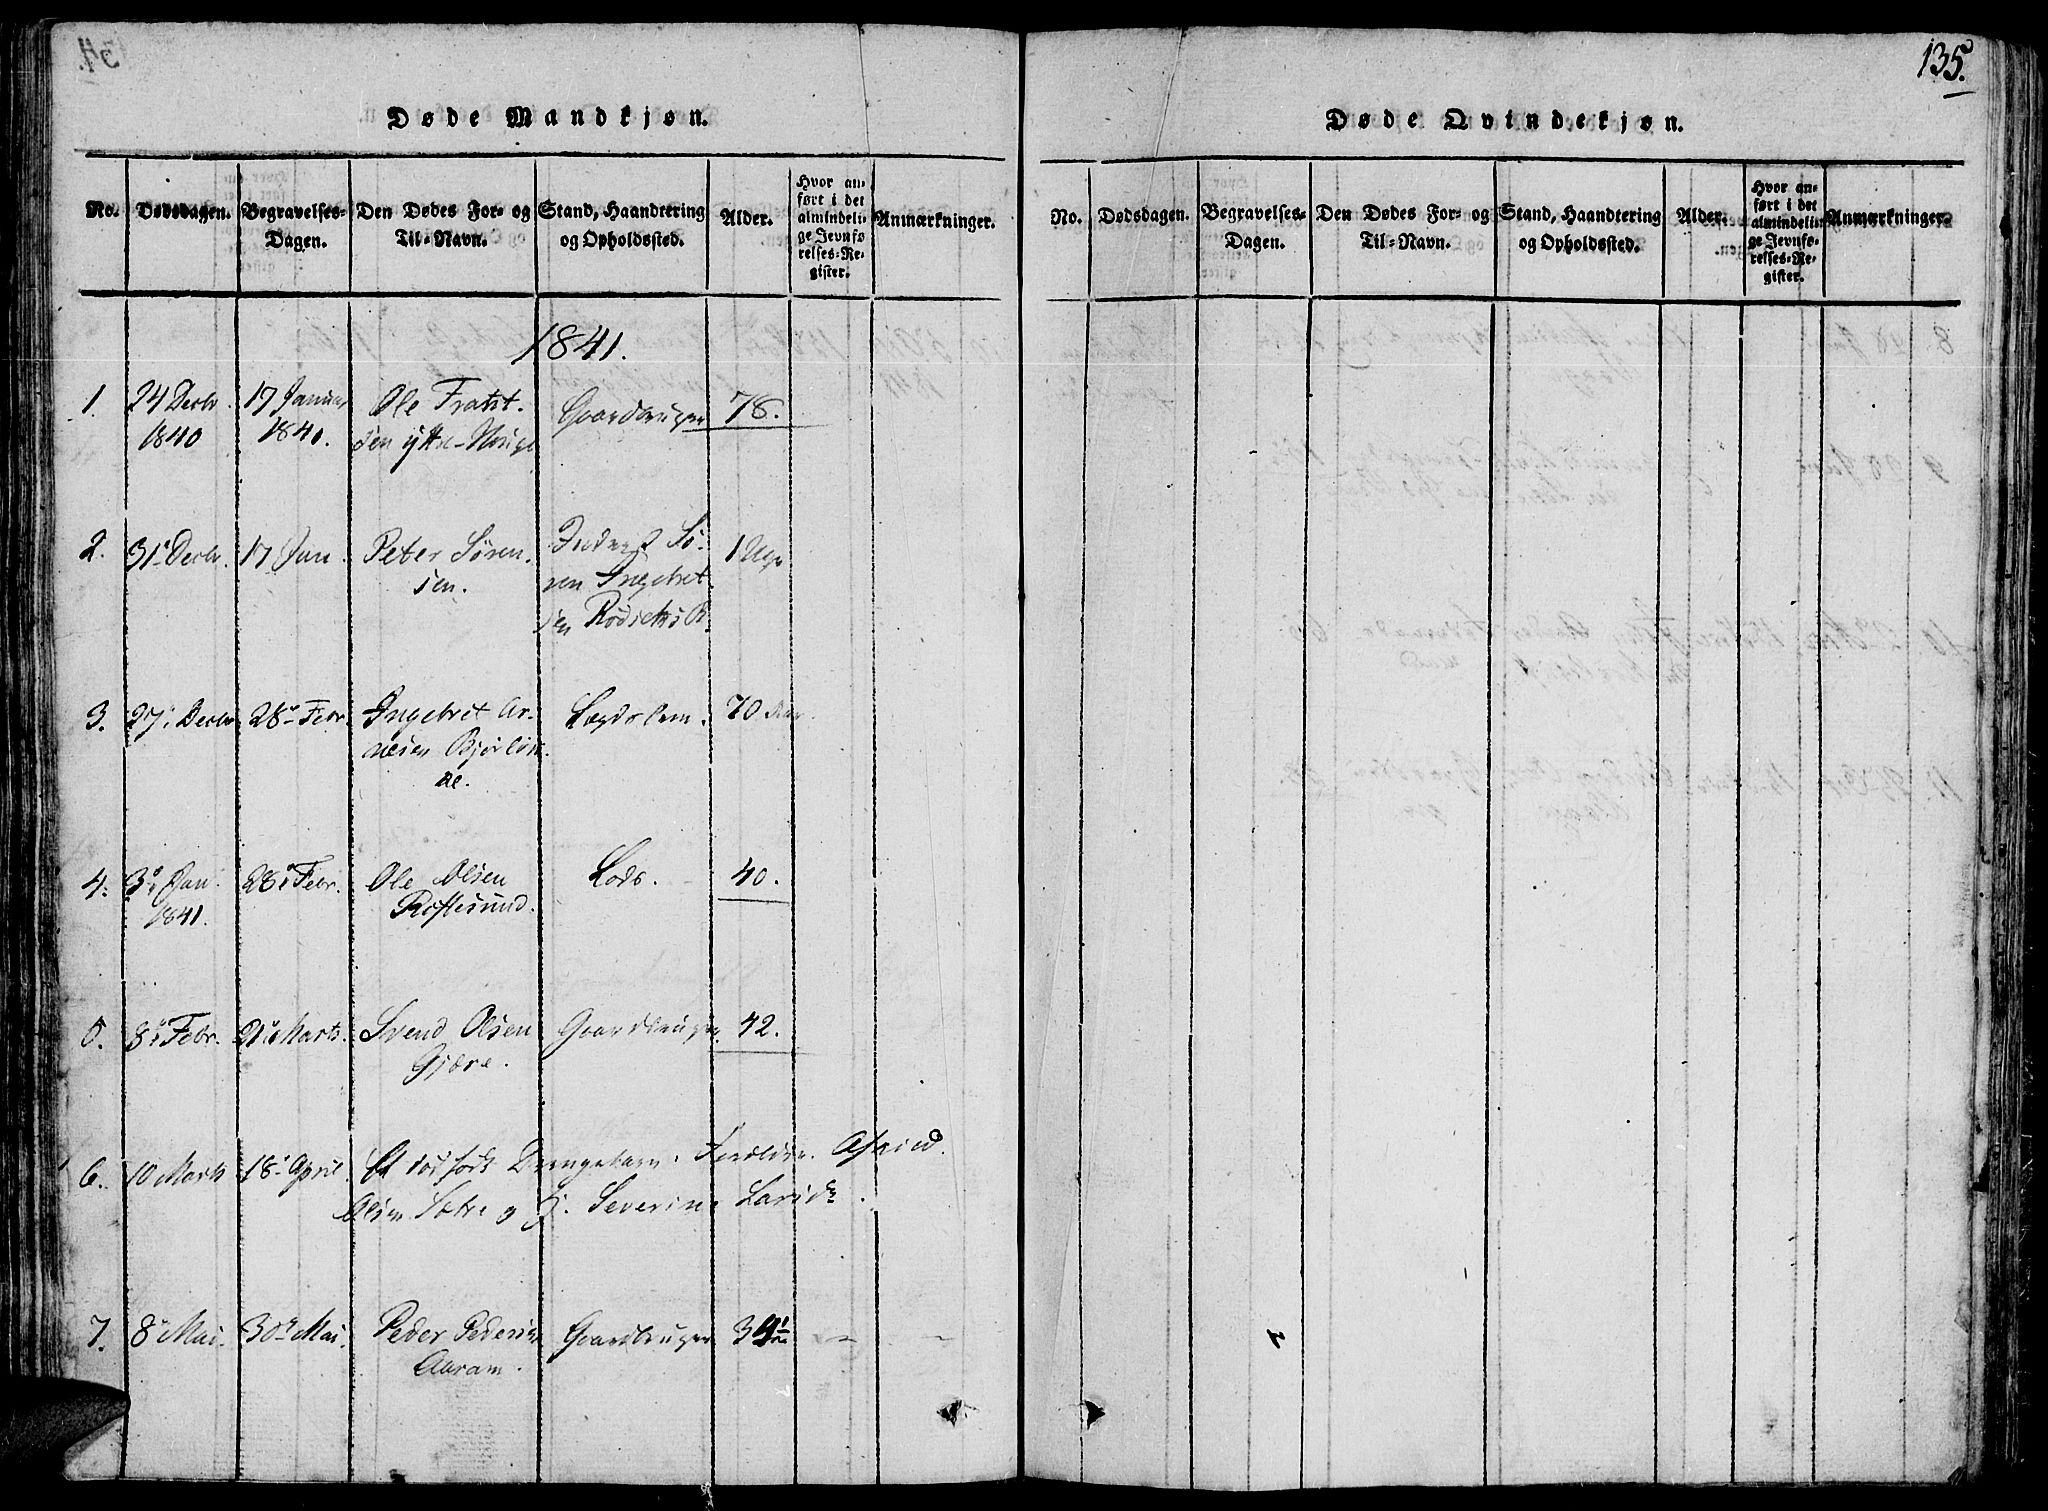 135.
Døde Mandkjøn.
No. Dødsdagen. Begravelses-Dagen. Den Dødes For- og Til-Navn. Stand, Haandtering og Opholdssted. Alder. Hvor anført i det almindelige Jevnførelses-Register. Anmærkninger.
1841.
1. 24 Decbr. 17 Januar Ole Gaardbruger 78.
1840 1841. sen ytre-
2. 31 Decbr. 17 Jan. Peter Søren- Inderst Sø- 1 Uge
sen. ren Ingebret
sen
3. 27 Decbr 28 Febr. Ingebret Ar- Lægdslem. 70 Aar.
nesen
de.
4. 3 Jan. 28 Febr. Ole Olsen Lods. 40.
1841. Røftesund.
5. 8 Febr. 21 Marts. Svend Olsen Gaardbruger. 42.
Gjære.
6. 10 Marts 18 April Et dødfødt Drengebarn. Forældre. Asri
Olsen Sætre og H. Severine Larsd.
7. 8 Mai. 30 Mai. Peder Pedersen Gaardbruger 3
Aaram.
Døde Qvindekjøn.
No. Dødsdagen. Begravelses-Dagen. Den Dødes For- og Til-Navn. Stand, Haandtering og Opholdssted. Alder. Hvor anført i det almindelige Jevnførelses-Register. Anmærkninger.